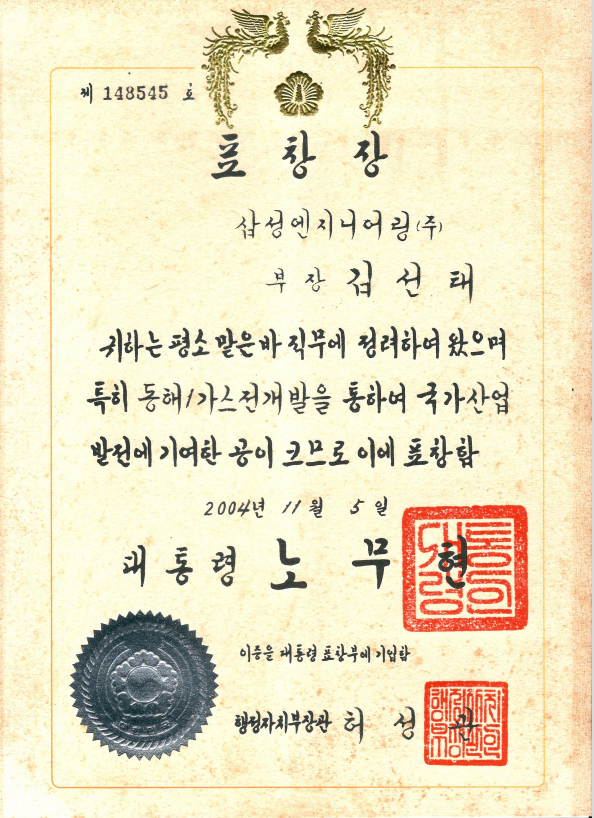 제 148545 호
표창장
삼성엔지니어링(주)
부장 김선태
귀하는 평소 맡은바 직무에 정려하여 왔으며
특히 동해1가스전개발을 통하여 국가산업
발전에 기여한 공이 크므로 이에 표창함
2004년 11월 5일
대통령 노무현
이증을 대통령 표창부에 기입함
행정자치부장관 허성관